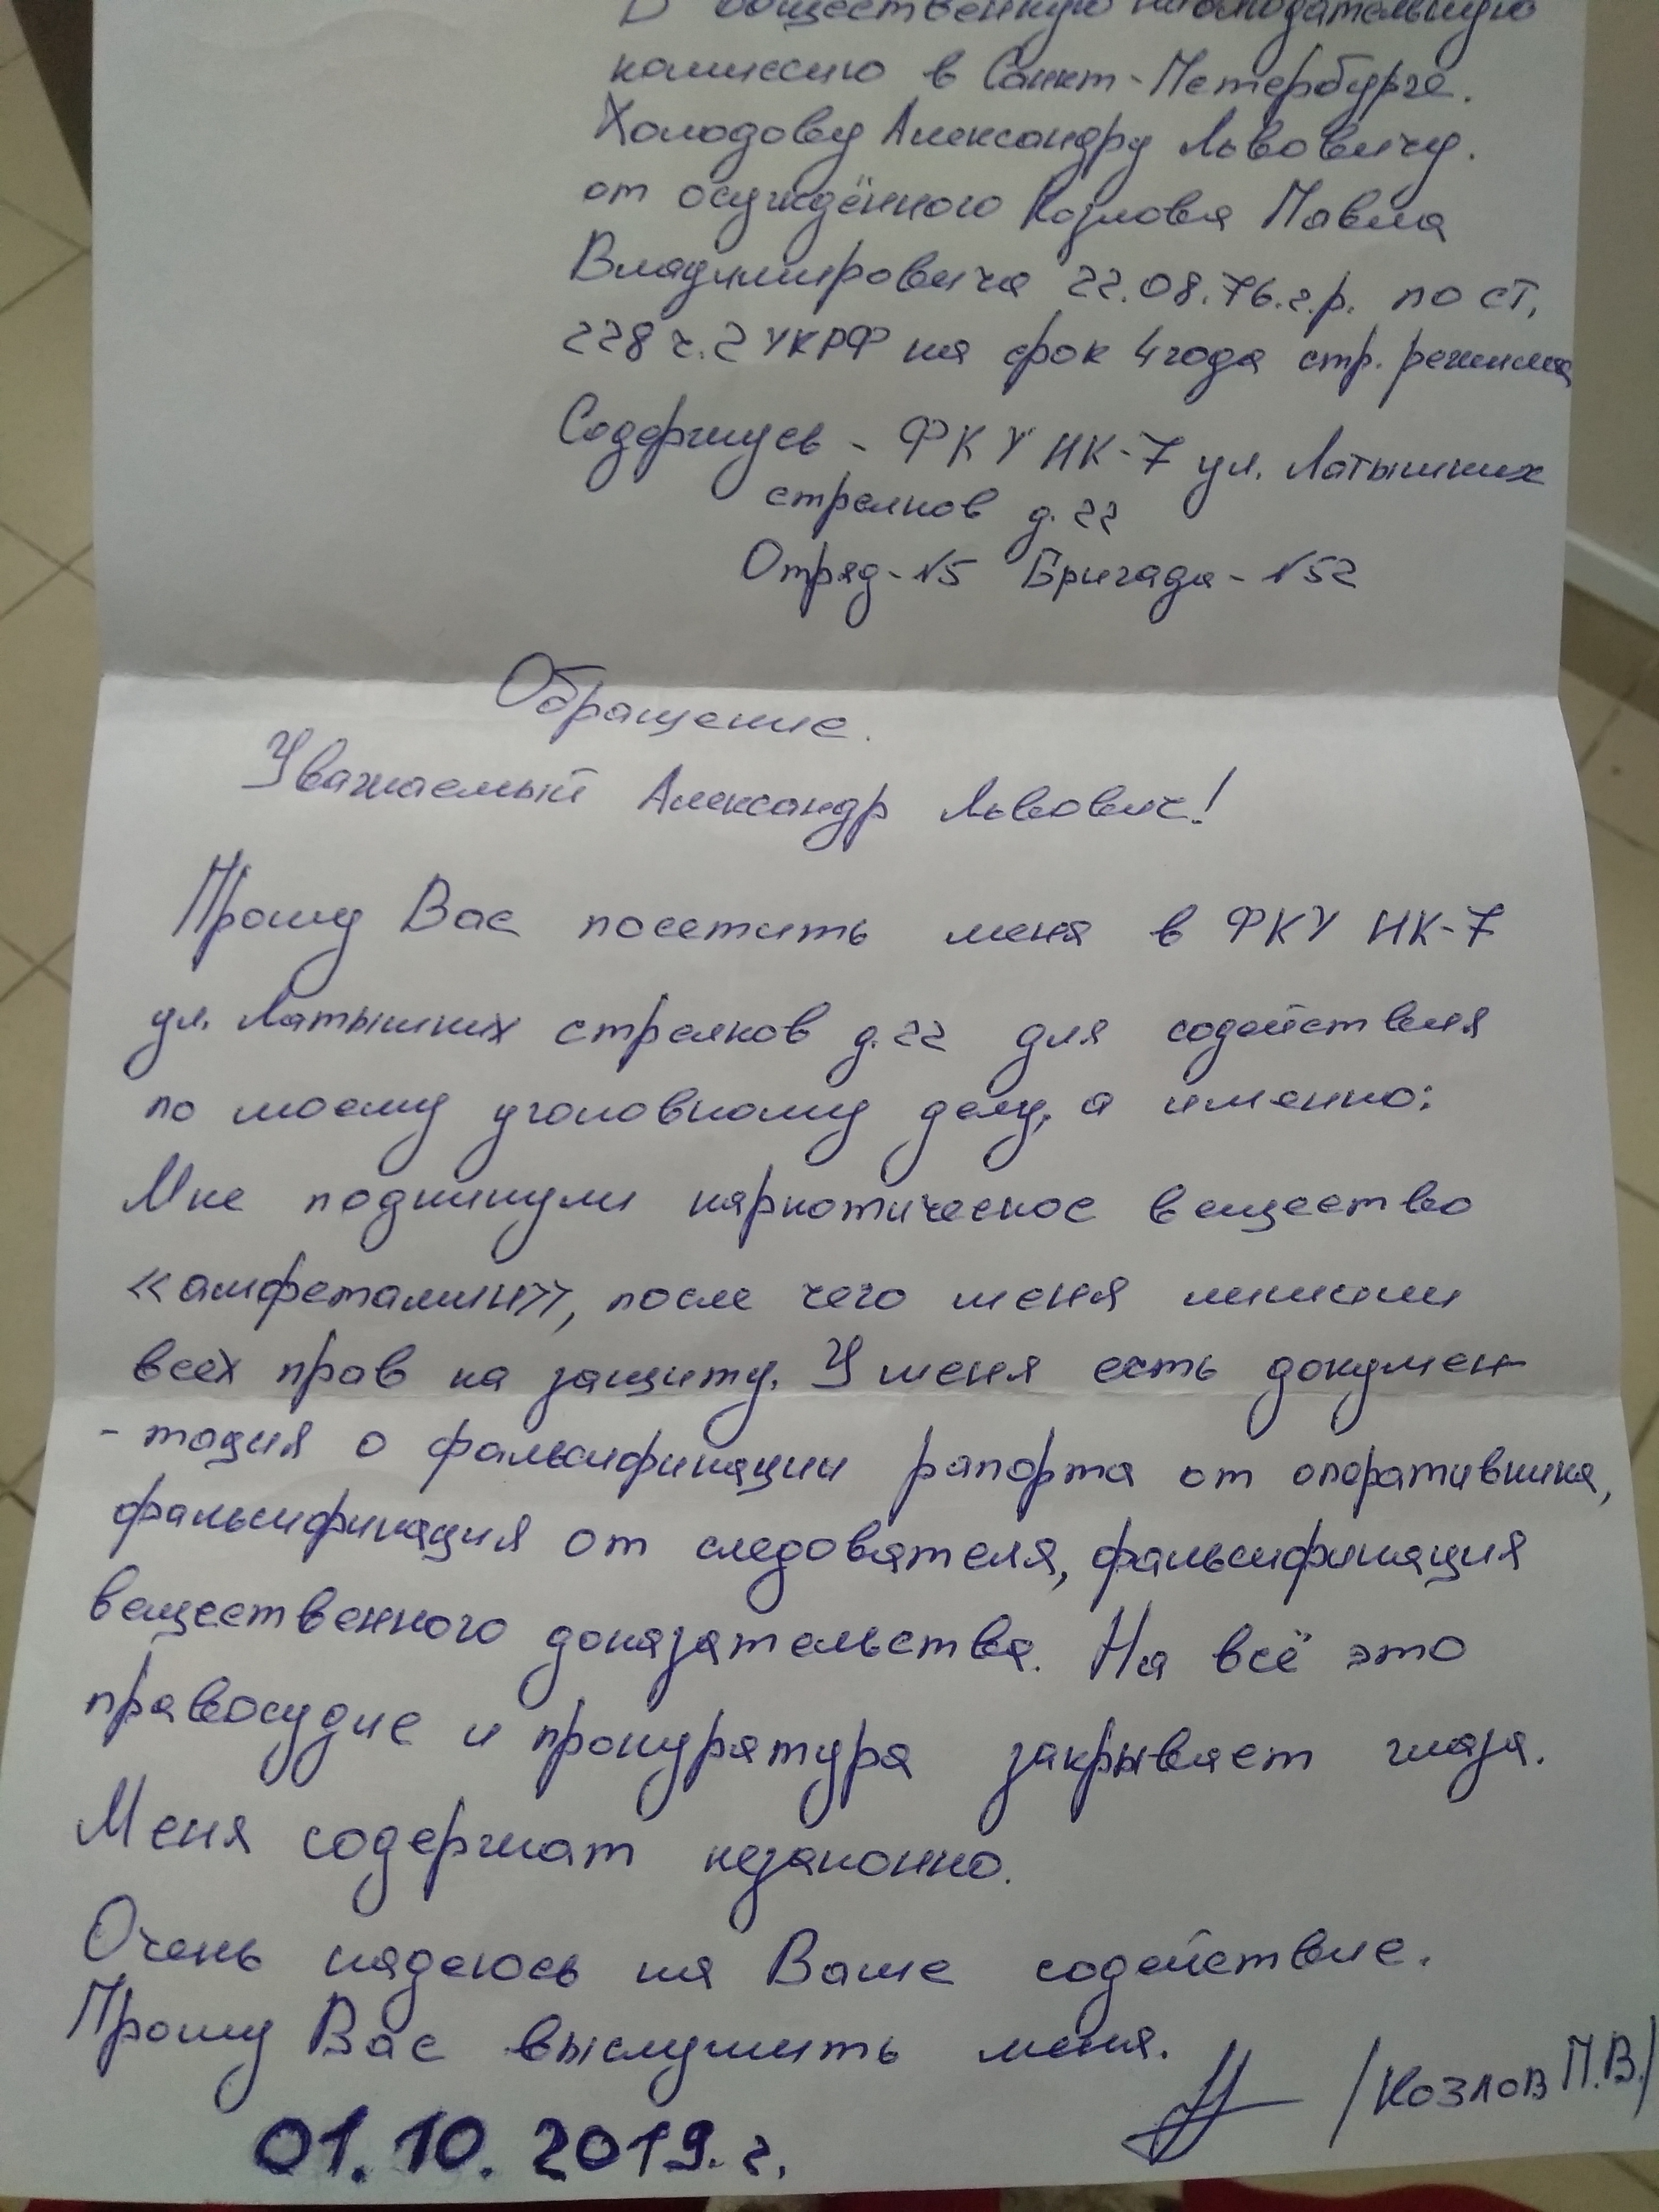 В общественную наблюдательную
комиссию в Санкт-Петербурге.
Холодову Александру Львовичу.
от осуждённого Козлова Павла
Владимировича 22.08.76.г.р. по ст,
228 ч.2 УКРФ на срок 4 года стр. режима
Содержусь - ФКУ ИК-7 ул. Латышких
стрелков д.22
Отряд-№5 Бригада-№52
Обращение.
Уважаемый Александр Львович!
Прошу Вас посетить меня в ФКУ ИК-7
ул. Латышких стрелков д.22 для содействия
по моему уголовному делу, а именно:
Мне подкинули наркотическое вещество
«амфетамин», после чего меня лишили
всех прав на защиту. У меня есть докумен
-тация о фальсификации рапорта от оперативника,
фальсификация от следователя, фальсификация
вещественного доказательства. На всё это
правосудие и прокуратура закрывает глаза.
Меня содержат незаконно.
Очень надеюсь на Ваше содействие.
Прошу Вас выслушить меня.
/Козлов П.В./
01.10.2019.г.